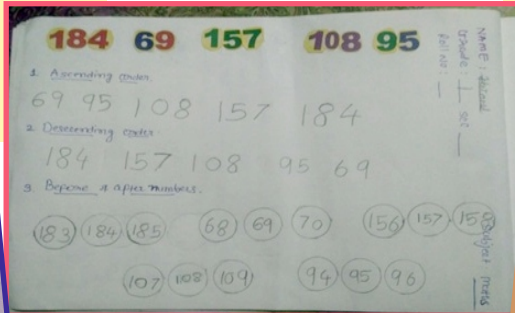 184 69 157 108 95
1. Ascending order.
69 95 108 157 184
2. Descending order.
184 157 108 95 69
3. Before & after numbers.
183 184 185 68 69 70 156 157 158
107 108 109 94 95 96
NAME:
Grade: I Sec
Roll No:
Subject Maths